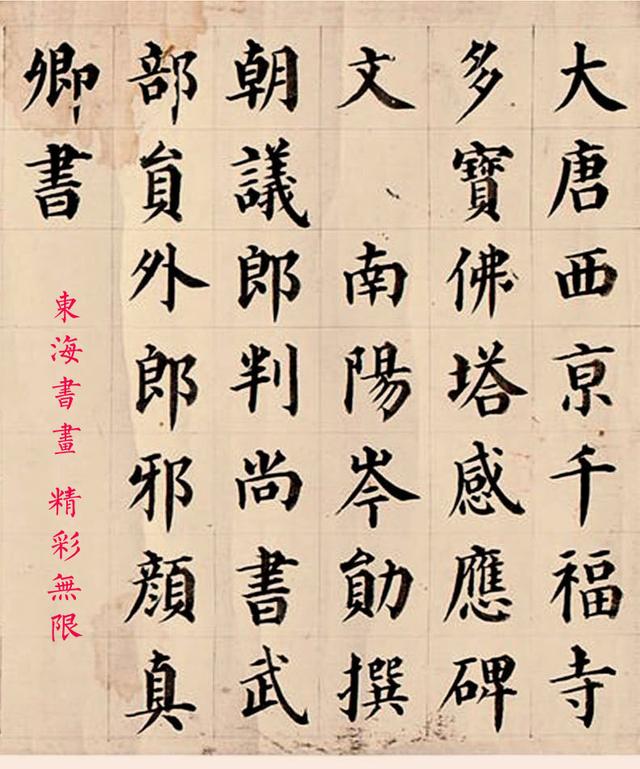 大唐西亰千福寺
多寶佛塔感應碑
文 南陽岑勛撰
朝議郎判尚書武
部貟外郎邪顏真
卿書
東海書畫 精彩無限